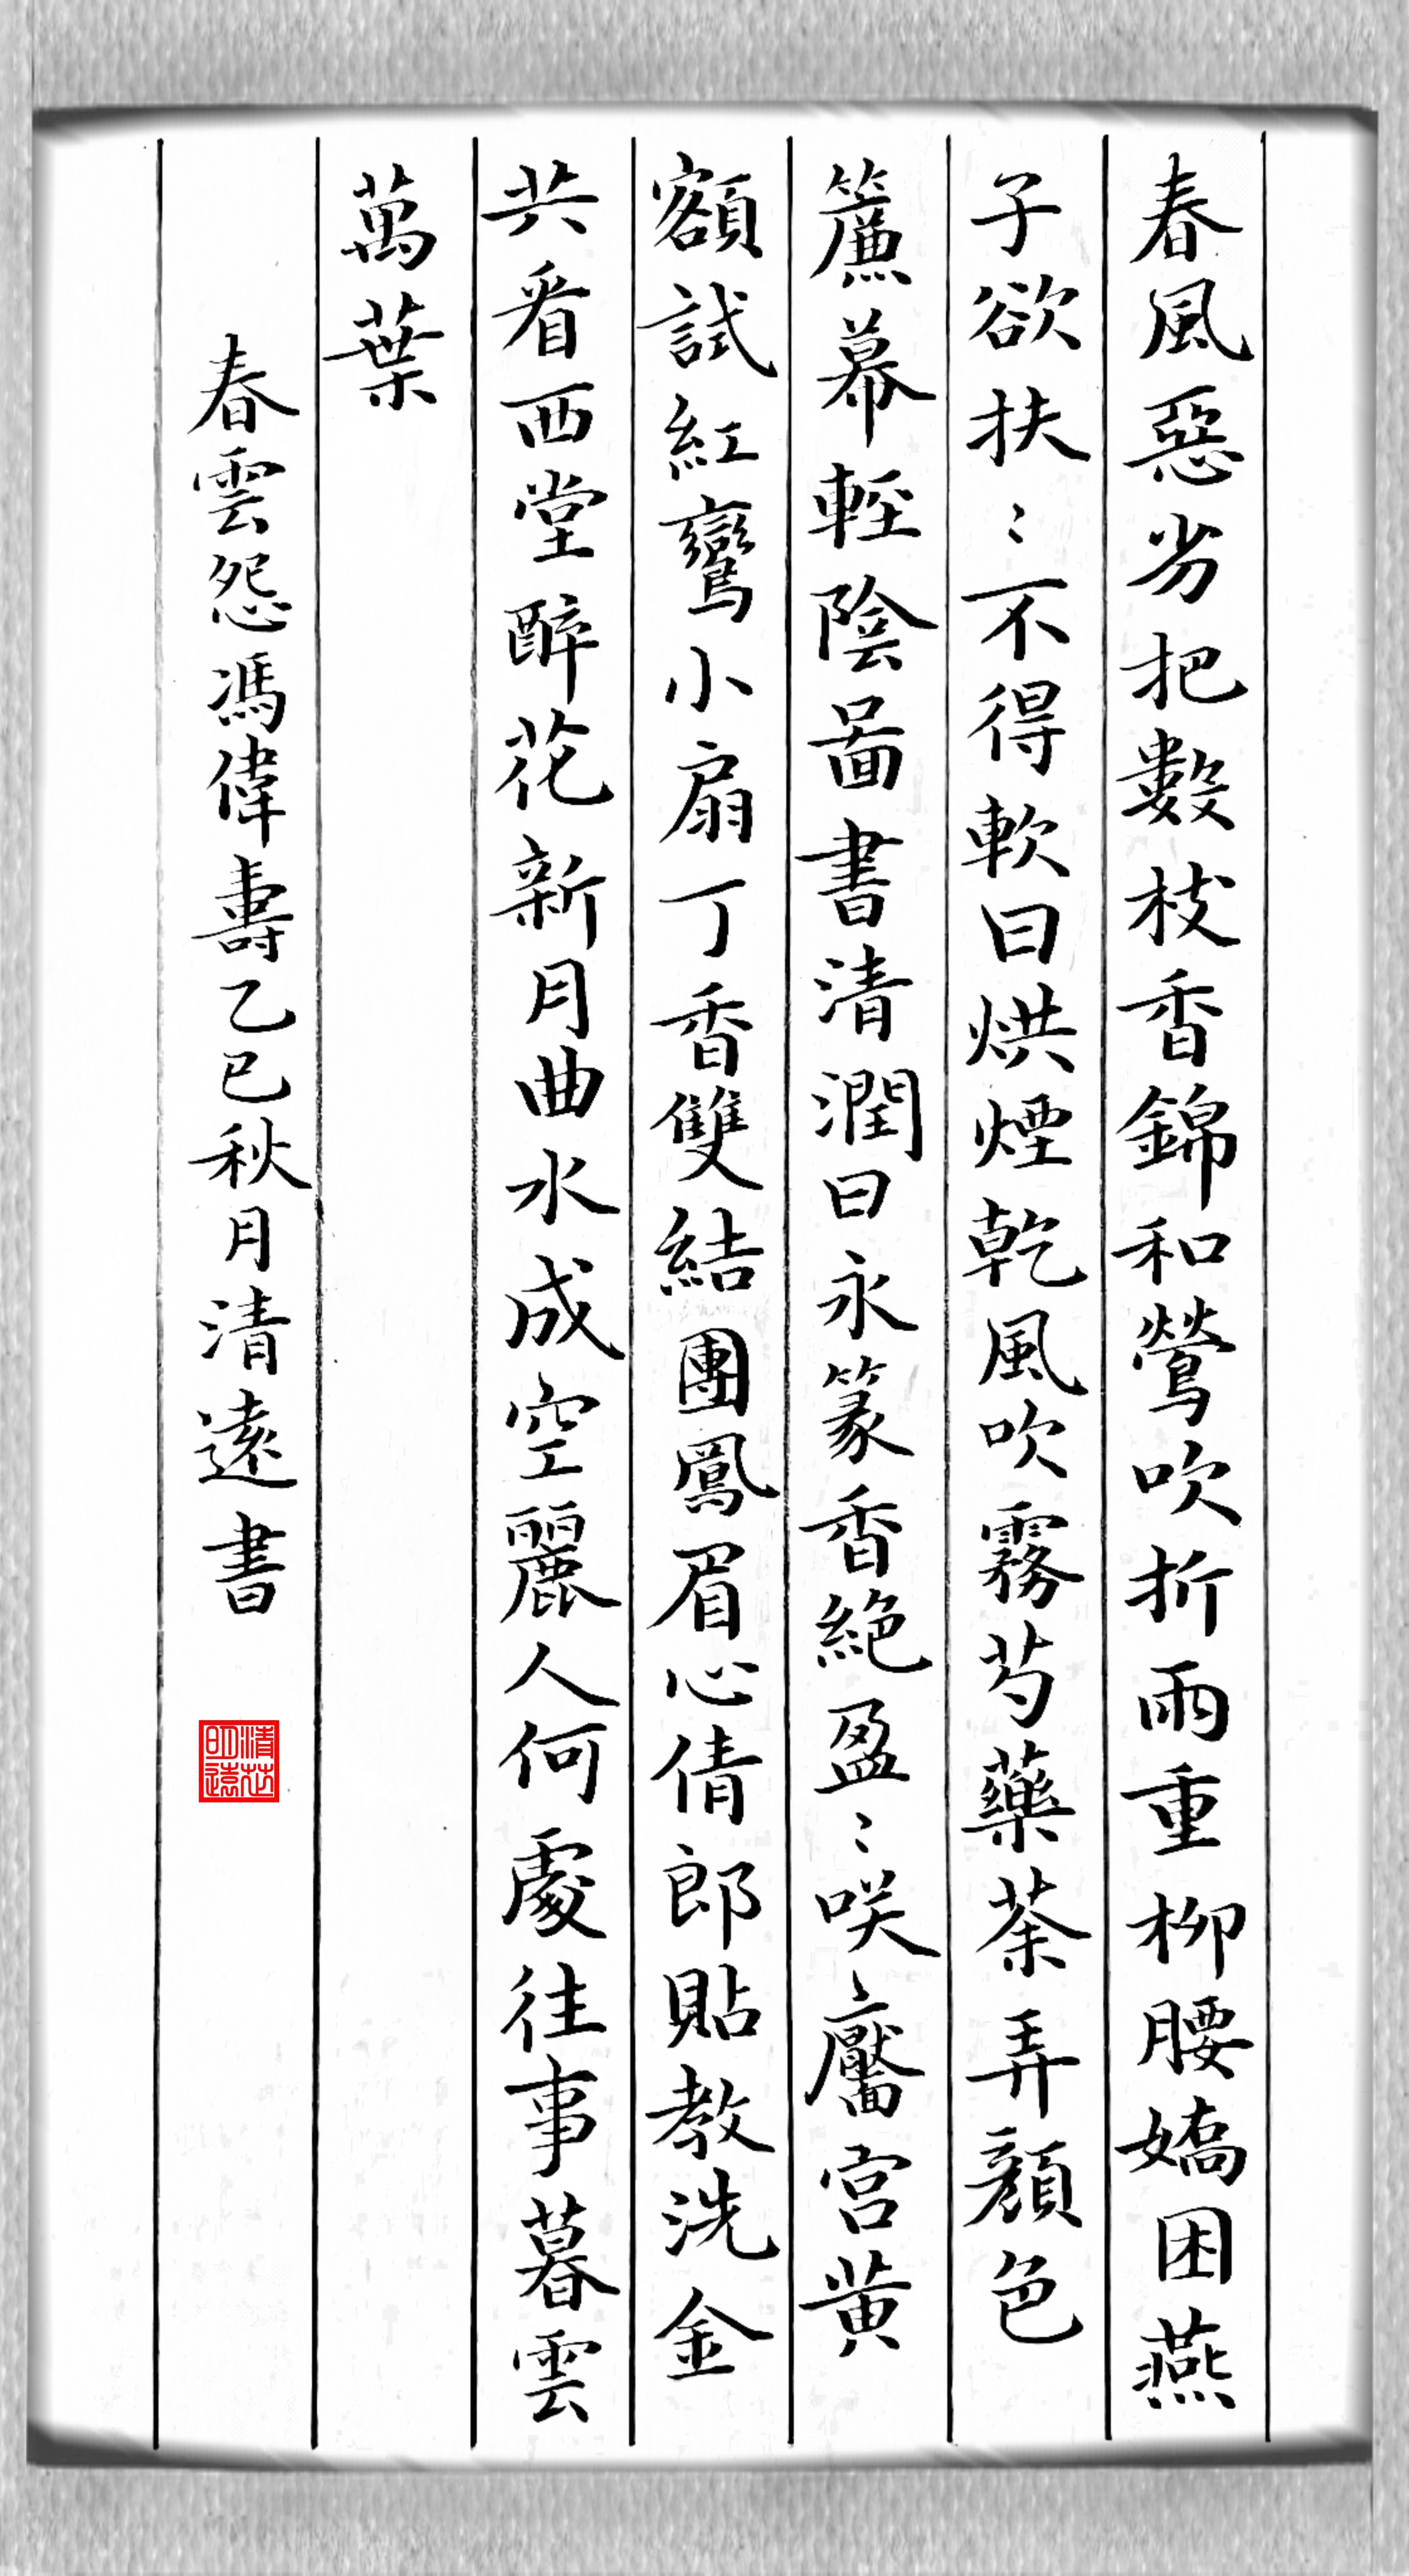 春風惡劣把數枝香錦和鶯吹折雨重柳腰嬌困燕
子欲扶〻不得軟日烘煙乾風吹霧芍藥荼弄顏色
簾幕輕陰啚書清潤日永篆香絶盈〻咲靨宮黄
額試紅鸞小扇丁香雙結團鳳眉心倩郎貼教洗金
共看西堂醉花新月曲水成空麗人何處往事暮雲
萬葉
春雲怨馮偉壽乙巳秋月清遠書
清芷明遠